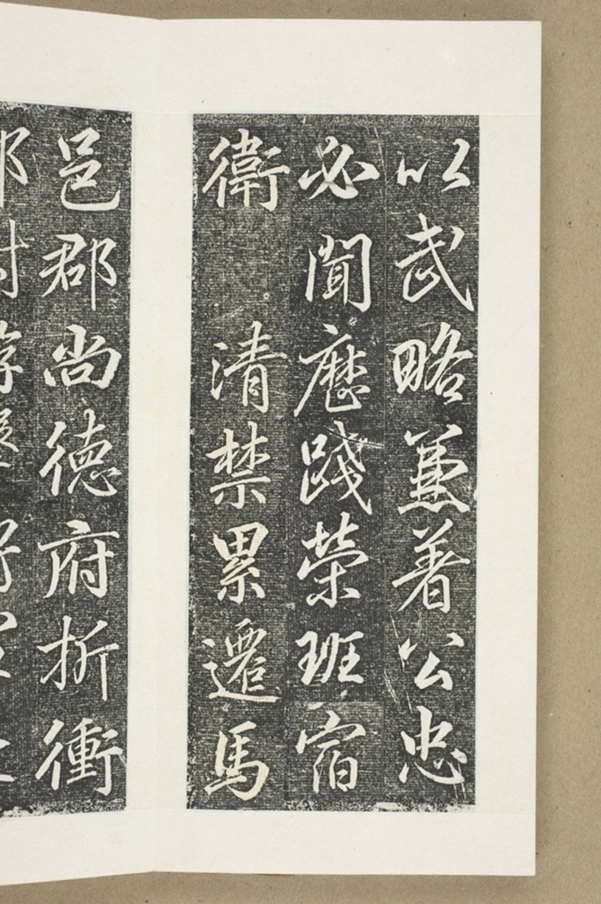 以武略兼著公忠
必聞歷踐榮班宿
衛 清禁累遷馬
邑郡尚德府折衝